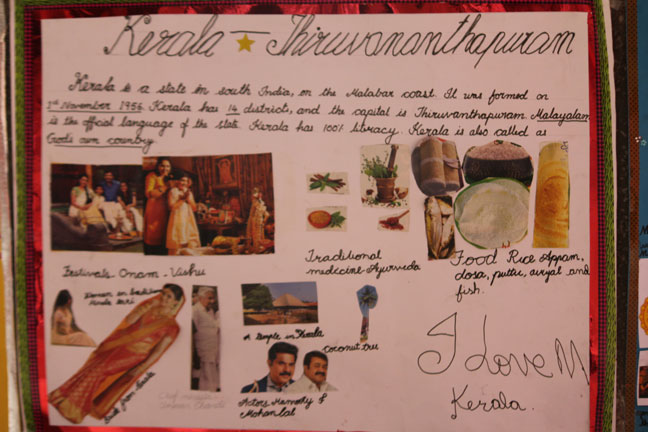 Kerala ★ Thiruvananthapuram
Kerala is a state in south India, on the Malabar coast. It was formed on
1st November 1956. Kerala has 14 districts, and the capital is Thiruvanthapuram. Malayalam
is the official language of the state. Kerala has 100% literacy. Kerala is also called as
God's own country.
Festivals - Onam - Vishu
Traditional
medicine Ayurveda
Food Rice Appam,
dosa, puttu, aviyal and
fish.
Women in
Kerala Sari
A temple in Kerala
Coconut tree
Chief minister
Actors Mamooty &
Mohan lal
I Love M
Kerala.